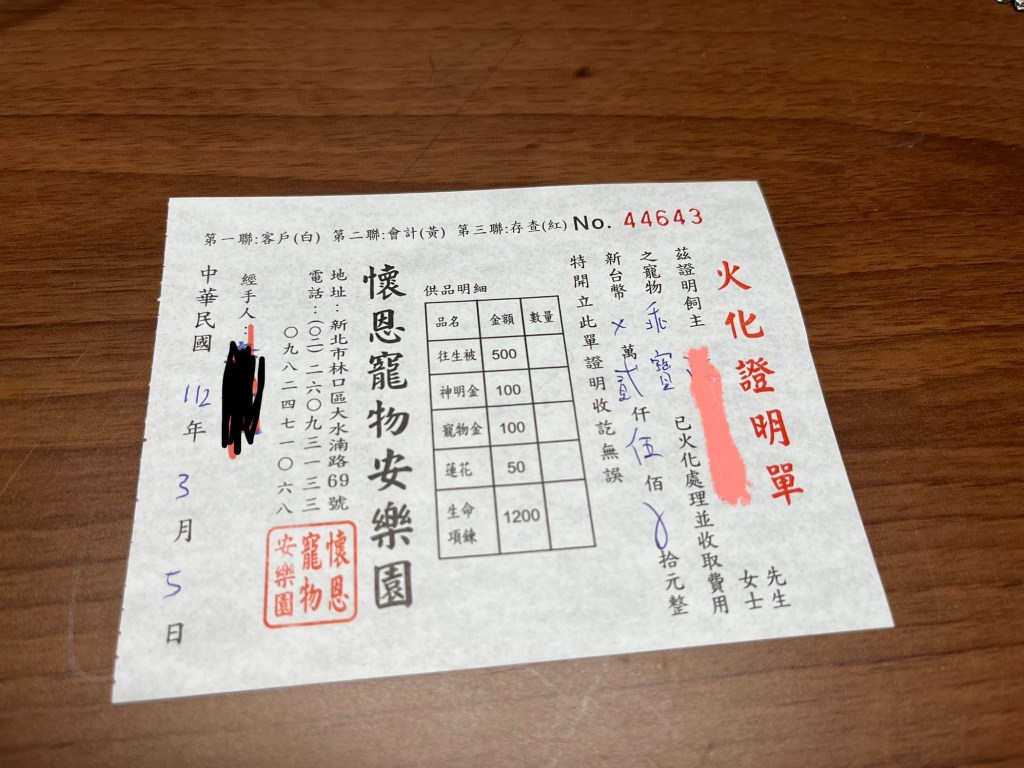 第一聯:客戶(白) 第二聯:會計(黃) 第三聯:存查(紅) No. 44643
火化證明單
茲證明飼主 先生
女士
之寵物 乖寶 已火化處理並收取費用
新台幣 × 萬 貳 仟 伍 佰 拾元整
特開立此單證明收訖無誤
供品明細
品名 金額 數量
往生被 500
神明金 100
寵物金 100
蓮花 50
生命項鍊 1200
懷恩寵物安樂園
地址:新北市林口區大水湳路69號
電話:(〇二)二六〇九三一三三
〇九八二四七一〇六八
懷恩
寵物
安樂園
經手人:
中華民國 112 年 3 月 5 日